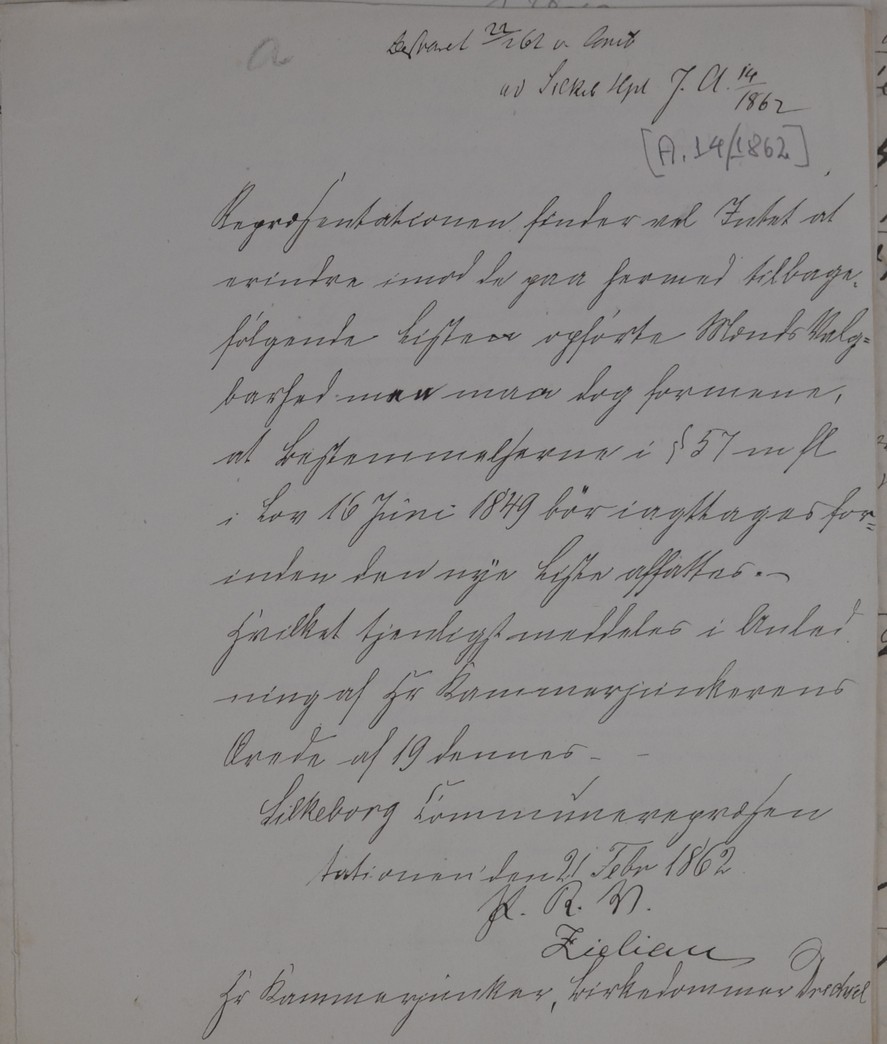 a
Besvaret 22/2 62 v Conceb
ad Silkeb Hpl J. A. 14/1862
[A. 14/1862]
Repræsentationen finder vel Intet at
erindre imod de paa hermed tilbage-
følgende Listen opførte Mænds Valg=
barhed men maa dog formene,
at Bestemmelserne i § 57 m fl
i Lov 16 Juni 1849 bör iagttages for=
inden den nye Liste affattes.-
Hvilket tjenligst meddeles i Anled
ning af Hr Kammerjunkerens
Ærede af 19 dennes -
Silkeborg Communerepræsen
tationen den 21 Febr 1862
P. R. V.
Zieliau
Hr Kammerjunker, Birkedommer Drechsel